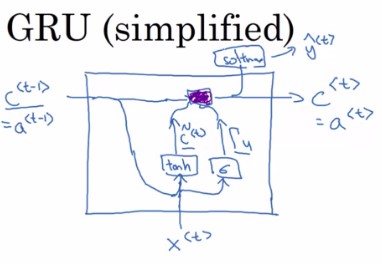 GRU (simplified)
softmax
ŷ<t>
c<t-1>
c<t>
= a<t-1>
= a<t>
c̃<t>
Γu
tanh
σ
x<t>